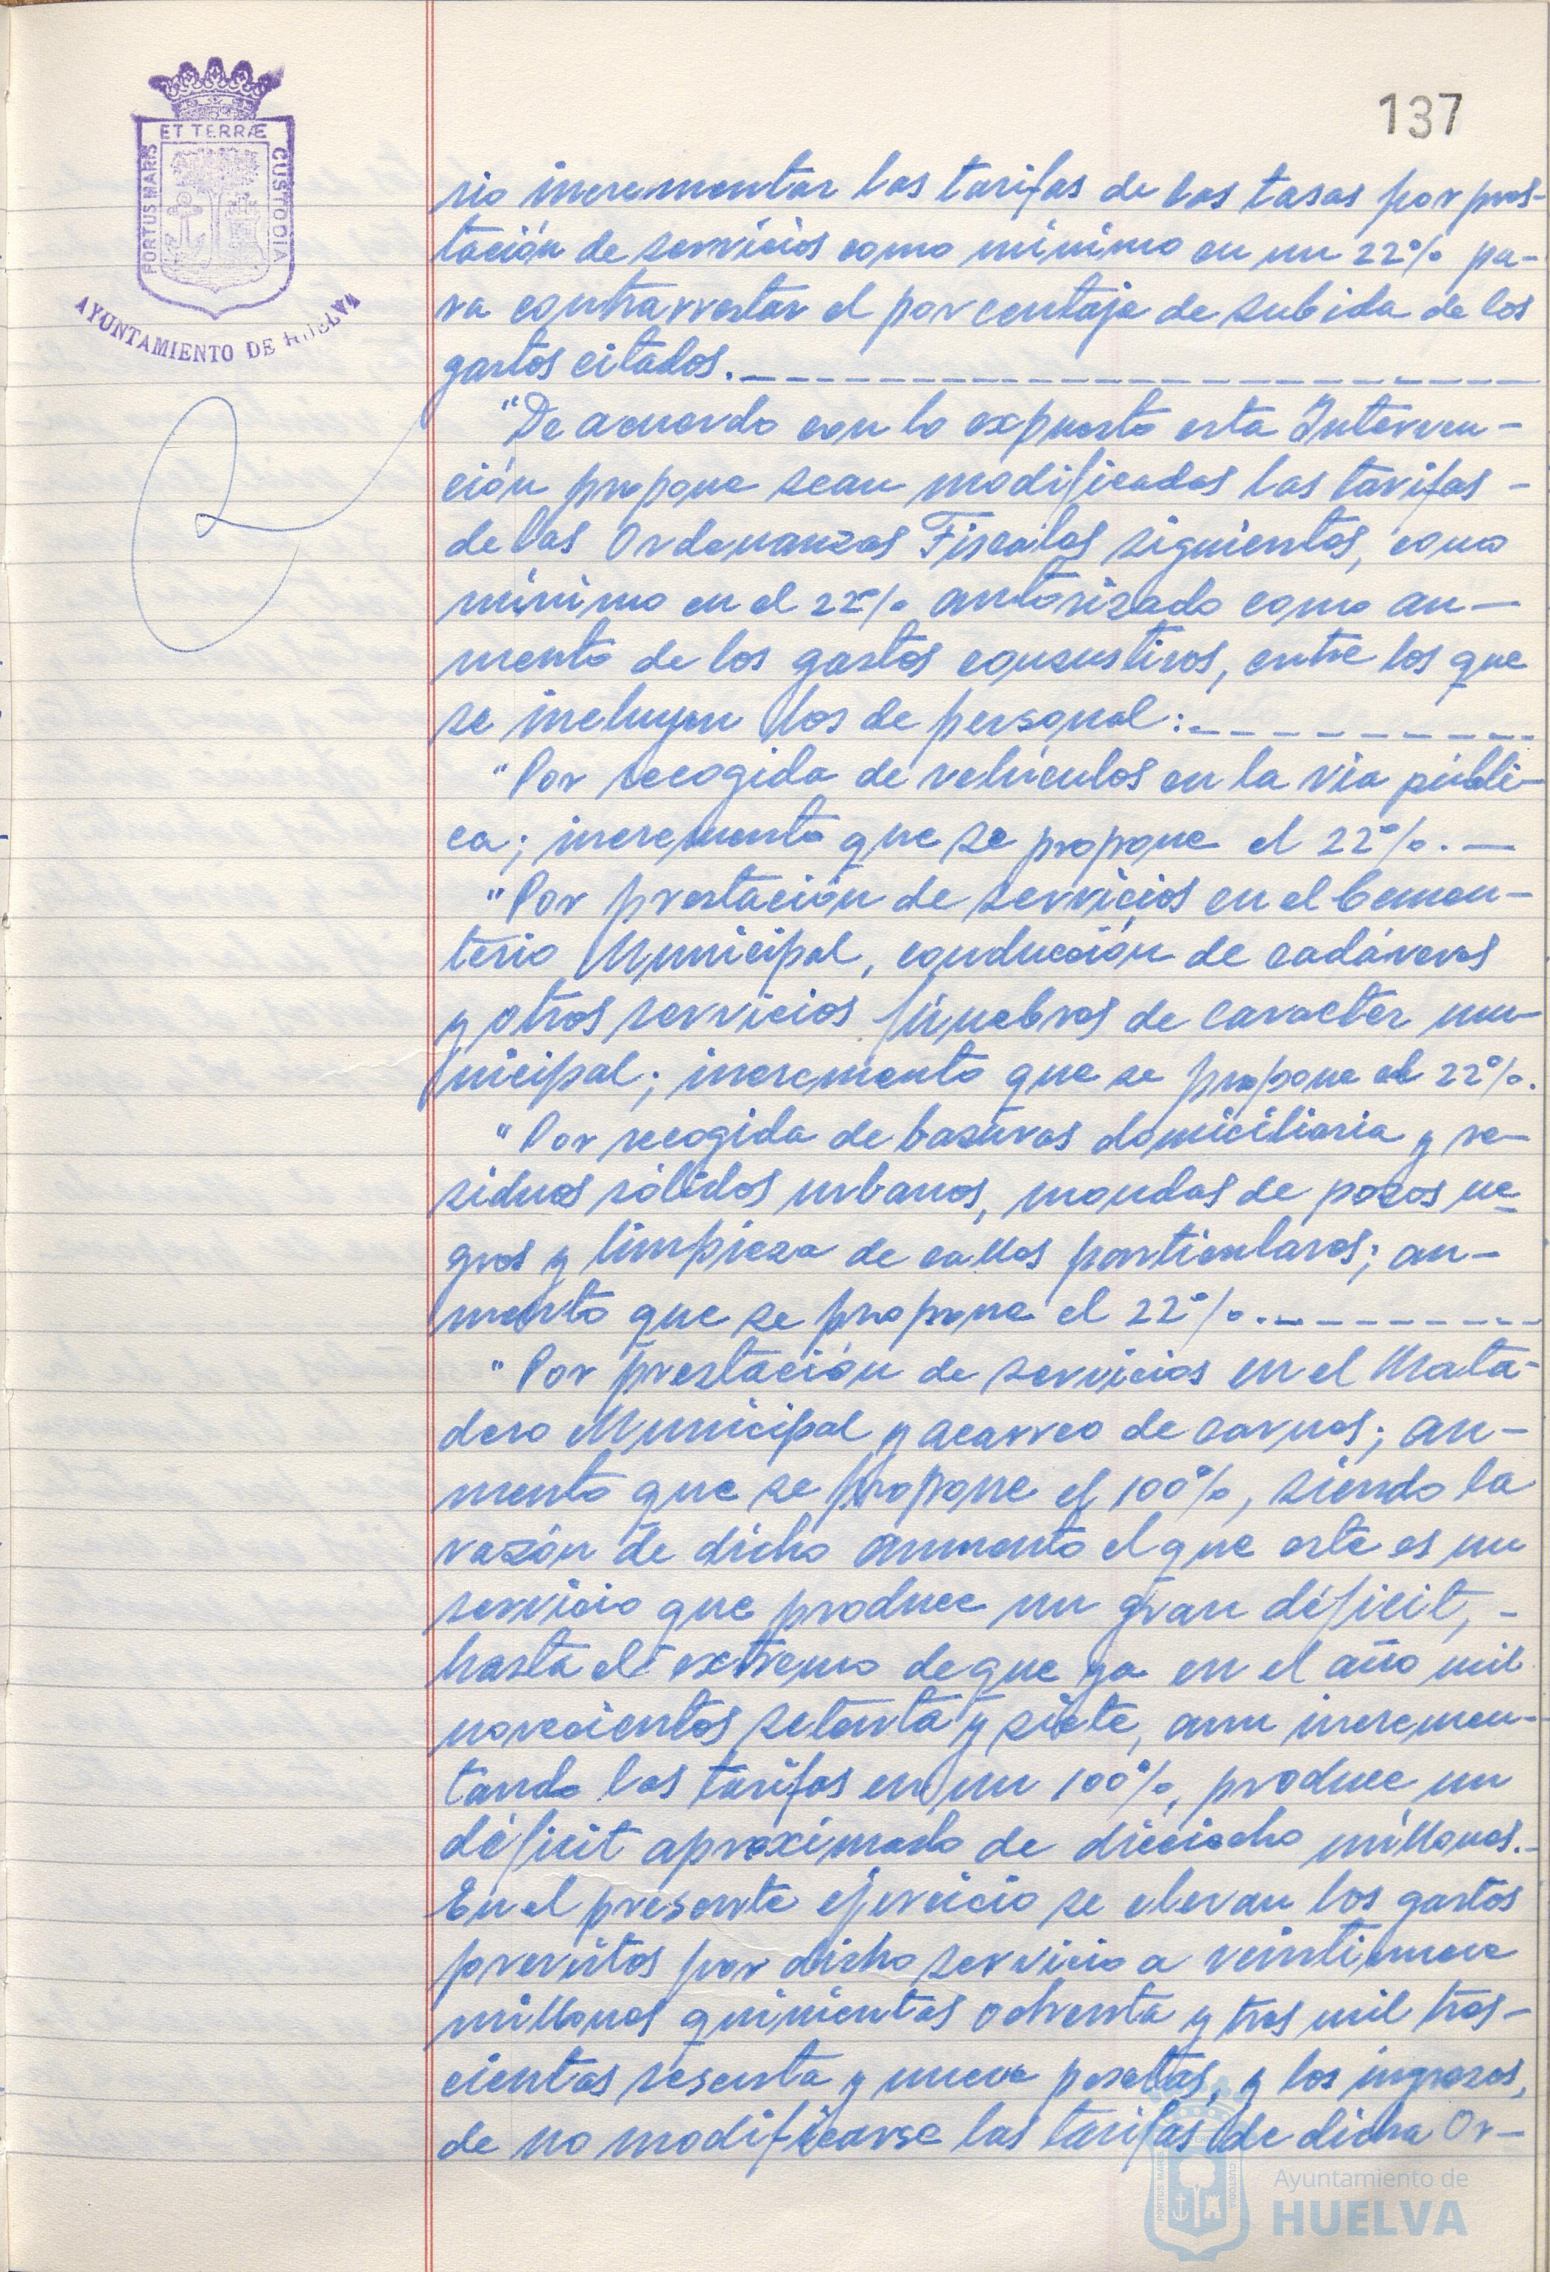 137
ET TERRÆ
PORTUS MARIS
CUSTODIA
AYUNTAMIENTO DE HUELVA
rio incrementar las tarifas de las tasas por pres-
tación de servicios como mínimo en un 22% pa-
ra contrarrestar el porcentaje de subida de los
gastos citados.
"De acuerdo con lo expuesto esta Interven-
ción propone sean modificadas las tarifas -
de las Ordenanzas Fiscales siguientes, como
mínimo en el 22% autorizado como au-
mento de los gastos consuntivos, entre los que
se incluyen los de personal:
"Por recogida de vehículos en la vía públi-
ca; incremento que se propone el 22%. -
"Por prestación de servicios en el Cemen-
terio Municipal, conducción de cadáveres
y otros servicios fúnebres de caracter mu-
nicipal; incremento que se propone el 22%.
"Por recogida de basuras domiciliaria y re-
siduos sólidos urbanos, mondas de pozos ne-
gros y limpieza de calles particulares; au-
mento que se propone el 22%.
"Por prestación de servicios en el Mata-
dero Municipal y acarreo de carnes; au-
mento que se propone el 100%, siendo la
razón de dicho aumento el que este es un
servicio que produce un gran déficit, -
hasta el extremo de que ya en el año mil
novecientos setenta y siete, aun incremen-
tando las tarifas en un 100%, produce un
déficit aproximado de dieciocho millones.-
En el presente ejercicio se elevan los gastos
previstos por dicho servicio a veintinueve
millones quinientas ochenta y tres mil tres-
cientas sesenta y nueve pesetas, y los ingresos,
de no modificarse las tarifas de dicha Or-
Ayuntamiento de
HUELVA